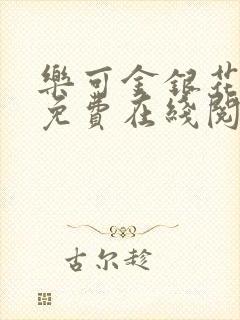 樂可金銀花
免費在綫閱
古尔趁